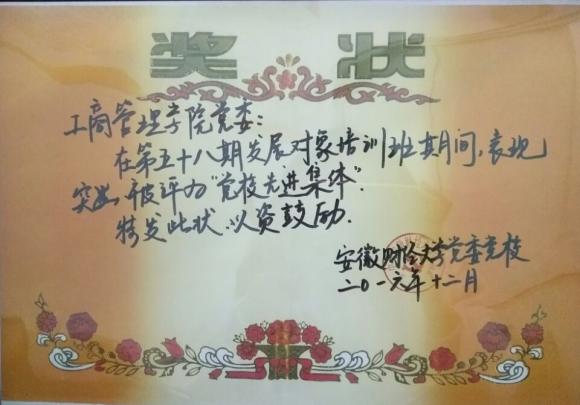 奖状
工商管理学院党委:
在第五十八期发展对象培训班期间,表现
突出,被评为"党校先进集体".
特发此状,以资鼓励.
安徽财经大学党委党校
二〇一六年十二月